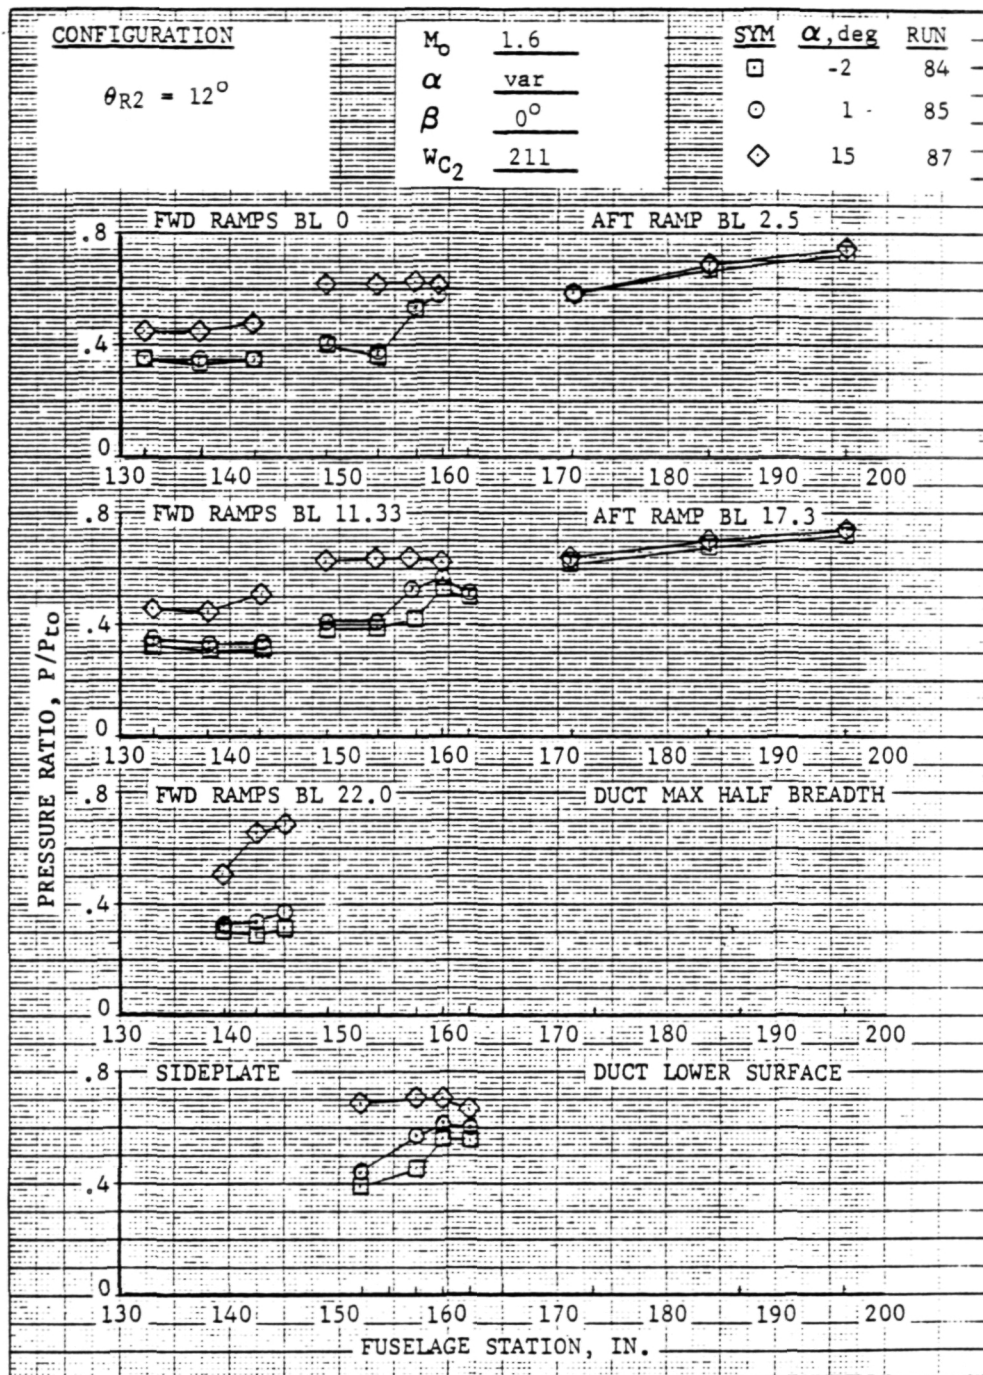 CONFIGURATION
θR2 = 12°
Mo 1.6
α var
β 0°
WC2 211
SYM α,deg RUN
-2 84
1 85
15 87
FWD RAMPS BL 0
AFT RAMP BL 2.5
.8
.4
0
130 140 150 160 170 180 190 200
FWD RAMPS BL 11.33
AFT RAMP BL 17.3
.8
.4
0
130 140 150 160 170 180 190 200
FWD RAMPS BL 22.0
DUCT MAX HALF BREADTH
.8
.4
0
130 140 150 160 170 180 190 200
SIDEPLATE
DUCT LOWER SURFACE
.8
.4
0
130 140 150 160 170 180 190 200
PRESSURE RATIO, P/Pto
FUSELAGE STATION, IN.